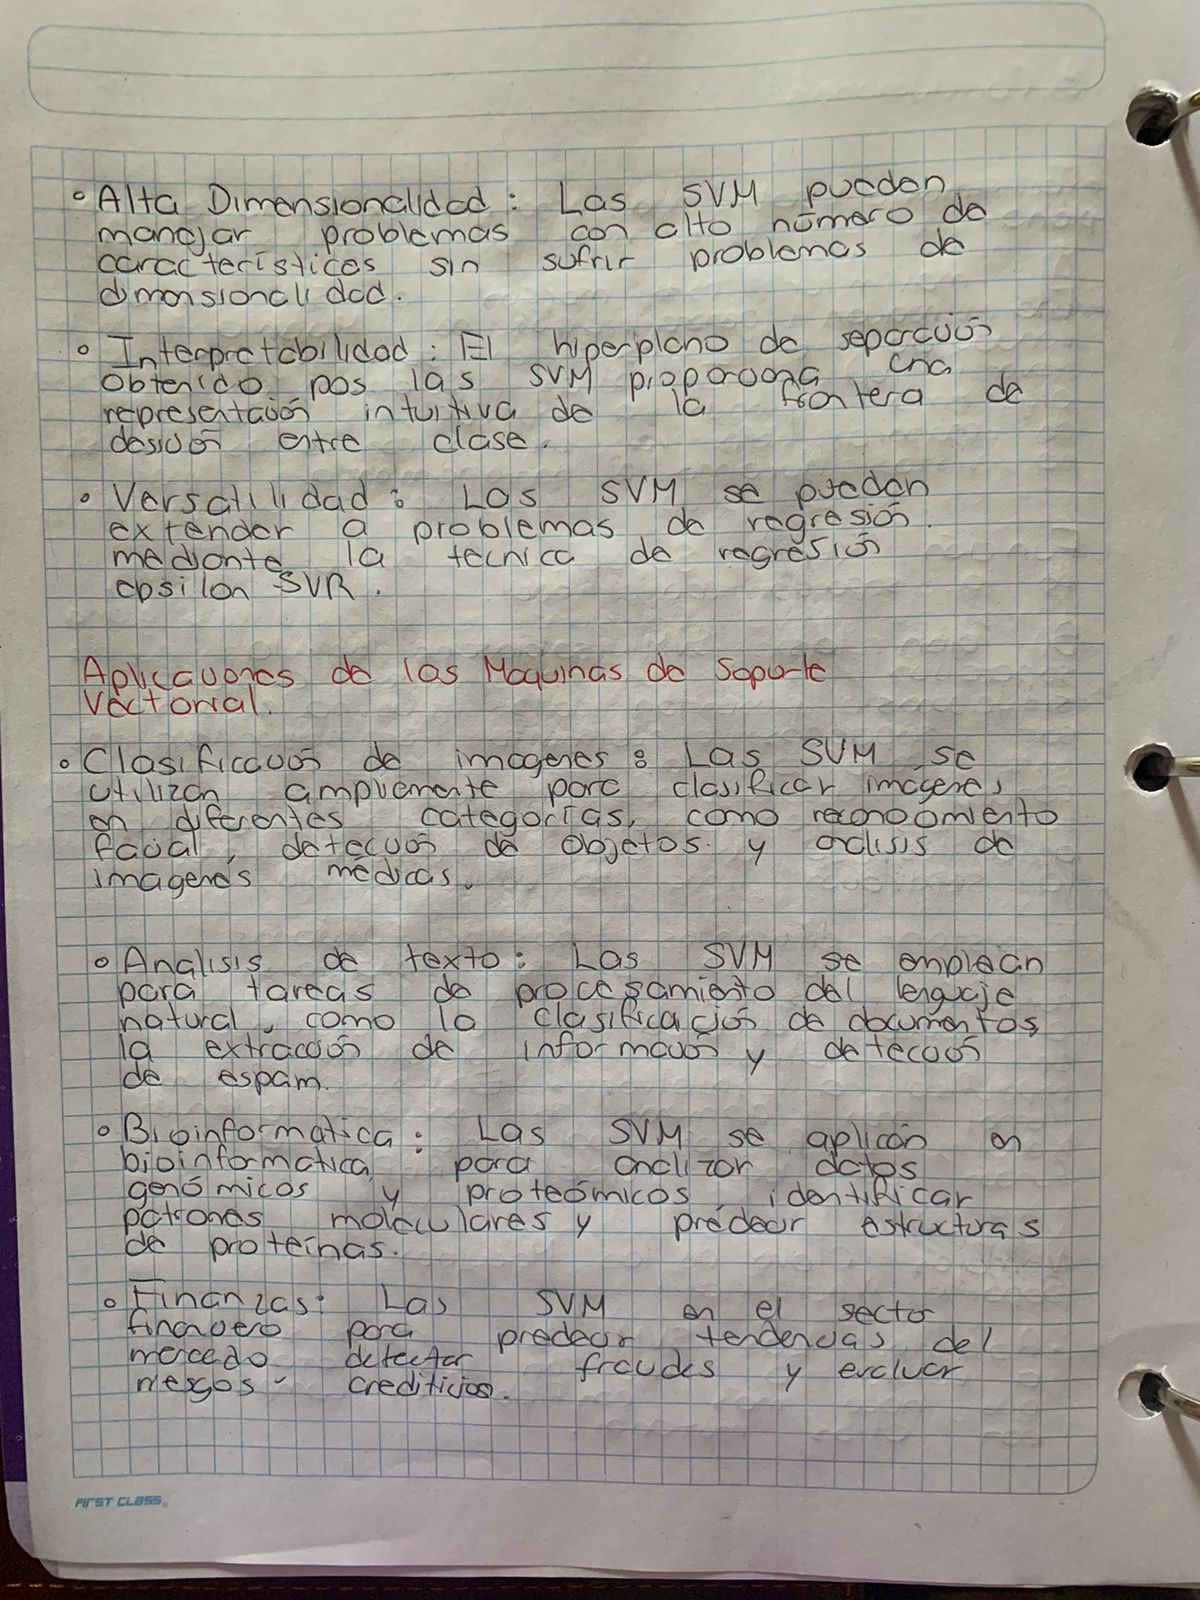 • Alta Dimensionalidad : Las SVM pueden
manejar problemas con alto número de
características sin sufrir problemas de
dimensionalidad.
• Interpretabilidad : El hiperplano de separación
obtenido pos las SVM proporciona una
representación intuitiva de la frontera de
desición entre clase.
• Versatilidad : Las SVM se pueden
extender a problemas de regresión.
mediante la técnica de regresión
epsilon SVR.
Aplicaciones de las Maquinas de Soporte
Vectorial.
• Clasificación de imagenes : Las SVM se
utilizan ampliemente para clasificar imagenes
en diferentes categorías, como reconocimiento
facial, detección de objetos. y análisis de
imagenes médicas.
• Análisis de texto : Las SVM se emplean
para tareas de procesamiento del lenguaje
natural, como la clasificación de documentos,
la extracción de información y detección
de espam.
• Bioinformatica : Las SVM se aplican en
bioinformatica para analizar datos
genómicos y proteómicos, identificar
patrones moleculares y predecir estructuras
de proteínas.
• Finanzas : Las SVM en el sector
financiero para predecir tendencias del
mercado detectar fraudes y evaluar
riesgos - crediticios.
FIRST CLASS